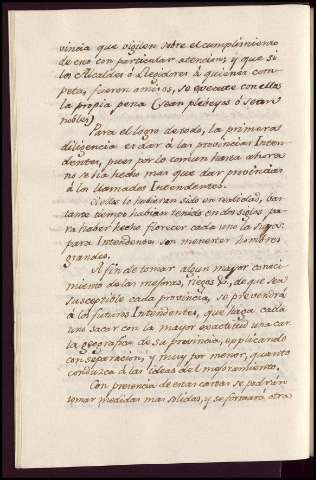 vincia que vigilen sobre el cumplimiento
de esto con particular atencion; y que si
los Alcaldes ó Regidores á quienes com-
peta, fueron omisos, se execute con ellos
la propia pena (sean plebeyos ó sean
nobles)
Para el logro de todo, la primera
diligencia es dar á las provincias Inten-
dentes, pues por lo comun hasta ahora
no se ha hecho mas que dar provincias
á los llamados Intendentes.
Si ellos lo hubieran sido en realidad, bas-
tante tiempo habian tenido en dos siglos pa-
ra haber hecho florecer cada uno la suya:
para Intendentes son menester hombres
grandes.
A fin de tomar algun mayor conoci-
miento de las mejoras, riegos &, de que sea
susceptible cada provincia, se prevendrá
á los futuros Intendentes, que haga cada
uno sacar con la mayor exactitud una car-
ta geografica de su provincia, explicando
con separacion, y muy por menor, quanto
conduzca á las ideas del mejoramiento.
Con presencia de estas cartas se podrán
tomar medidas mas solidas, y se formará otra